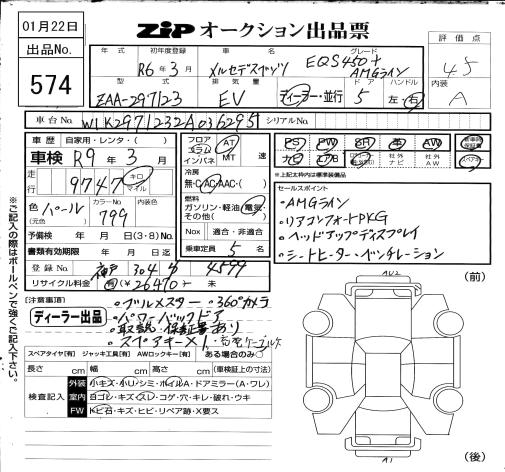 01月22日
出品No.
574
ZIP オークション出品票
評価点
4.5
内装
A
年式 初年度登録 車名 グレード
R6年3月 メルセデスベンツ EQS450+
AMGライン
型式 排気量 ドア ハンドル
ZAA-297123 EV ディーラー・並行 5 左・右
車台No. W1K2971232A036295 シリアルNo.
車歴 自家用・レンタ・( )
車検 R9年3月
走行 9747 キロ マイル
色 (元色) パール カラーNo. 799
予備検 年 月 日(3・8)No.
書類有効期限 年 月 日
登録No. 神戸 304 4599
リサイクル料金 有(¥26470)・未
フロア スラム インパネ AT MT 速
冷房 無・C・AC・AAC・( )
燃料 ガソリン・軽油・電気・その他( )
Nox 適合・非適合
乗車定員 5 名
PS PW SR 革 AW
ナビ エアB 社外ナビ 社外AW
※上記太枠内は標準装備品
セールスポイント
・AMGライン
・リアコンフォートPKG
・ヘッドアップディスプレイ
・シートヒーター・ベンチレーション
【注意事項】
ディーラー出品
・ブルメスター ・360°カメラ
・パワーバックドア
・取説・保証書あり
・スペアキー×1
スペアタイヤ【有】 ジャッキ工具【有】 AWロックキー【有】 ある場合のみ○
長さ cm 幅 cm 高さ cm (車検証上の寸法)
検査記入
外装 小キズ・小リ・シミ・ホイルA・ドアミラー(A・ワレ)
室内 ヨゴレ・キズ・スレ・コゲ・穴・キレ・破れ・ウキ
FW トビ石・キズ・ヒビ・リペア跡・X要ス
(前)
(後)
A1
※ご記入の際はボールペンで強くご記入下さい。